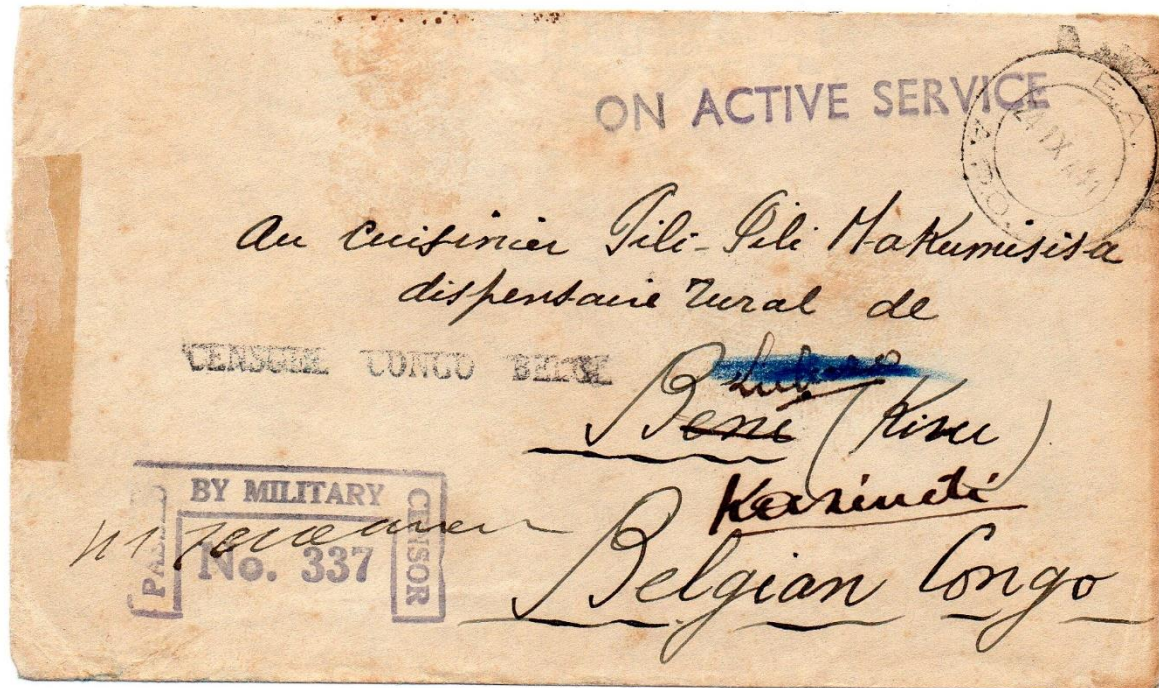 ON ACTIVE SERVICE
E.A.
A.P.O.
24 IX 41
Au cuisinier Pili-Pili Makumisisa
dispensaire rural de
CENSURE CONGO BELGE
Beni (Kivu)
Kasindi
Belgian Congo
PASSED BY MILITARY CENSOR
No. 337